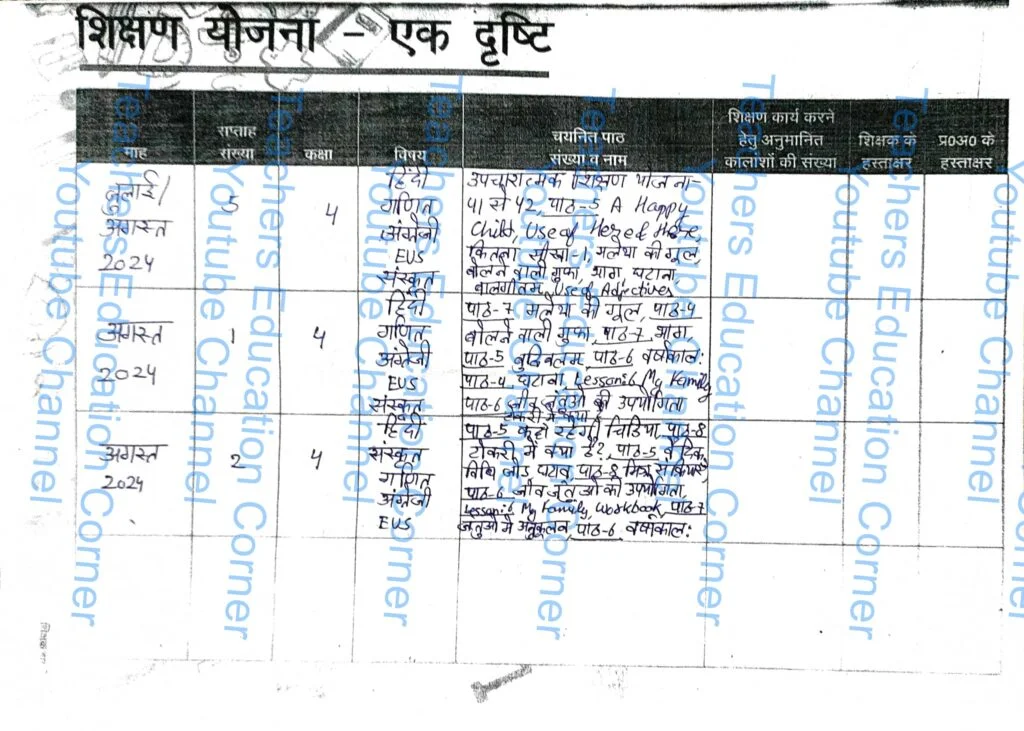 शिक्षण योजना - एक दृष्टि
माह
सप्ताह संख्या
कक्षा
विषय
चयनित पाठ संख्या व नाम
शिक्षण कार्य करने हेतु अनुमानित कालांशों की संख्या
शिक्षक के हस्ताक्षर
प्र0अ0 के हस्ताक्षर
जुलाई/
अगस्त
2024
5
4
हिंदी
गणित
अंग्रेजी
EVS
संस्कृत
उपचारात्मक शिक्षण योजना-
41 से 42, पाठ-5 A Happy
Child, Use of He
कितना सीखा-1, मलेथा की गूल,
बोलने वाली गुफा, भाग, घटाना,
बालगीतम, Use of Adjectives
अगस्त
2024
1
4
हिंदी
गणित
अंग्रेजी
EVS
संस्कृत
पाठ-7 मलेथा की गूल, पाठ-4
बोलने वाली गुफा, पाठ-7 भाग,
पाठ-5 बुद्धिबलम, पाठ-6 वर्षाकाल:
पाठ-4 घटाना, Lesson:6 My Family
पाठ-6 जीव जंतुओं की उपयोगिता
टोकरी में क्या
अगस्त
2024
2
4
हिंदी
संस्कृत
गणित
अंग्रेजी
EVS
पाठ-5 कहाँ रहेगी चिड़िया, पाठ-8
टोकरी में क्या है?, पाठ-5 वैदिक
विधि जोड़ घटाव, पाठ-8
पाठ-6 जीव जंतुओं की उपयोगिता,
Lesson:6 My Family, Workbook, पाठ-7
जंतुओं में अनुकूलन, पाठ-6 वर्षाकाल:
Teachers Education Corner
Youtube Channel
Teachers Education Corner
Youtube Channel
Teachers Education Corner
Youtube Channel
Teachers Education Corner
Youtube Channel